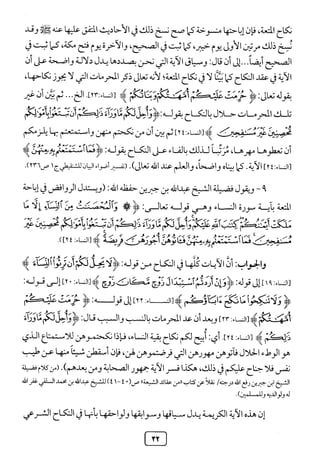 نكاح المتعة، فإن إباحتها منسوخة كما صح نسخ ذلك في الأحاديث المتفق عليها عنه ﷺ وقد
نُسِخ ذلك مرتين الأولى يوم خيبر، كما ثبت في الصحيح، والآخرة يوم فتح مكة، كما ثبت في
الصحيح أيضاً...إلى أن قال: وسياق الآية التي نحن بصددها يدل دلالة واضحة على أن
الآية في عقد النكاح كما بيّنّا لا في نكاح المتعة؛ لأنه تعالى ذكر المحرمات التي لا يجوز نكاحها،
بقوله تعالى: ﴿حُرِّمَتْ عَلَيْكُمْ أُمَّهَاتُكُمْ وَبَنَاتُكُمْ﴾ [النساء: ٢٣]. الخ... ثم بيّن أن غير
تلك المحرمات حلال بالنكاح بقوله: ﴿وَأُحِلَّ لَكُم مَّا وَرَاءَ ذَٰلِكُمْ أَن تَبْتَغُوا بِأَمْوَالِكُم
مُّحْصِنِينَ غَيْرَ مُسَافِحِينَ﴾ [النساء: ٢٤] ثم بين أن من نكحتم منهن واستمتعتم بها يلزمكم
أن تعطوها مهرها، مُرَتِّباً لذلك بالفاء على النكاح بقوله: ﴿فَمَا اسْتَمْتَعْتُم بِهِ مِنْهُنَّ﴾
[النساء: ٢٤] الآية. كما بيناه واضحاً، والعلم عند الله تعالى). (تفسير أضواء البيان للشنقيطي ج١ ص٢٣٦).
٩- ويقول فضيلة الشيخ عبدالله بن جبرين حفظه الله: (ويستدل الروافض في إباحة
المتعة بآية سورة النساء وهي قوله تعالى: ﴿وَالْمُحْصَنَاتُ مِنَ النِّسَاءِ إِلَّا مَا
مَلَكَتْ أَيْمَانُكُمْ كِتَابَ اللَّهِ عَلَيْكُمْ وَأُحِلَّ لَكُم مَّا وَرَاءَ ذَٰلِكُمْ أَن تَبْتَغُوا بِأَمْوَالِكُم مُّحْصِنِينَ غَيْرَ
مُسَافِحِينَ فَمَا اسْتَمْتَعْتُم بِهِ مِنْهُنَّ فَآتُوهُنَّ أُجُورَهُنَّ فَرِيضَةً﴾ [النساء: ٢٤].
والجواب: أنّ الآيات كُلّها في النكاح من قوله: ﴿لَا يَحِلُّ لَكُمْ أَن تَرِثُوا النِّسَاءَ﴾
[النساء: ١٩] إلى قوله: ﴿وَإِنْ أَرَدتُّمُ اسْتِبْدَالَ زَوْجٍ مَّكَانَ زَوْجٍ﴾ [النساء: ٢٠] إلى قوله:
﴿وَلَا تَنكِحُوا مَا نَكَحَ آبَاؤُكُم﴾ [النساء: ٢٢] إلى قوله: ﴿حُرِّمَتْ عَلَيْكُمْ
أُمَّهَاتُكُمْ﴾ [النساء: ٢٣] وبعد أن عد المحرمات بالنسب والسبب قال: ﴿وَأُحِلَّ لَكُم مَّا وَرَاءَ
ذَٰلِكُمْ﴾ [النساء: ٢٤]. أي: أبيح لكم نكاح بقية النساء، فإذا نكحتموهن للاستمتاع الذي
هو الوطء الحلال فآتوهن مهورهن التي فرضتموها لهن، فإن أسقطن شيئاً منها عن طيب
نفس فلا جناح عليكم في ذلك، هكذا فسر الآية جمهور الصحابة ومن بعدهم). (من كلام فضيلة
الشيخ ابن جبرين رفع الله درجته/ نقلاً عن كتاب (من عقائد الشيعة) ص(٤٠-٤١) للشيخ عبدالله بن محمد السلفي غفر الله
له ولوالديه وللمسلمين).
إن هذه الآية الكريمة يدل سياقها وسوابقها ولواحقها بأنها في النكاح الشرعي
٢٢